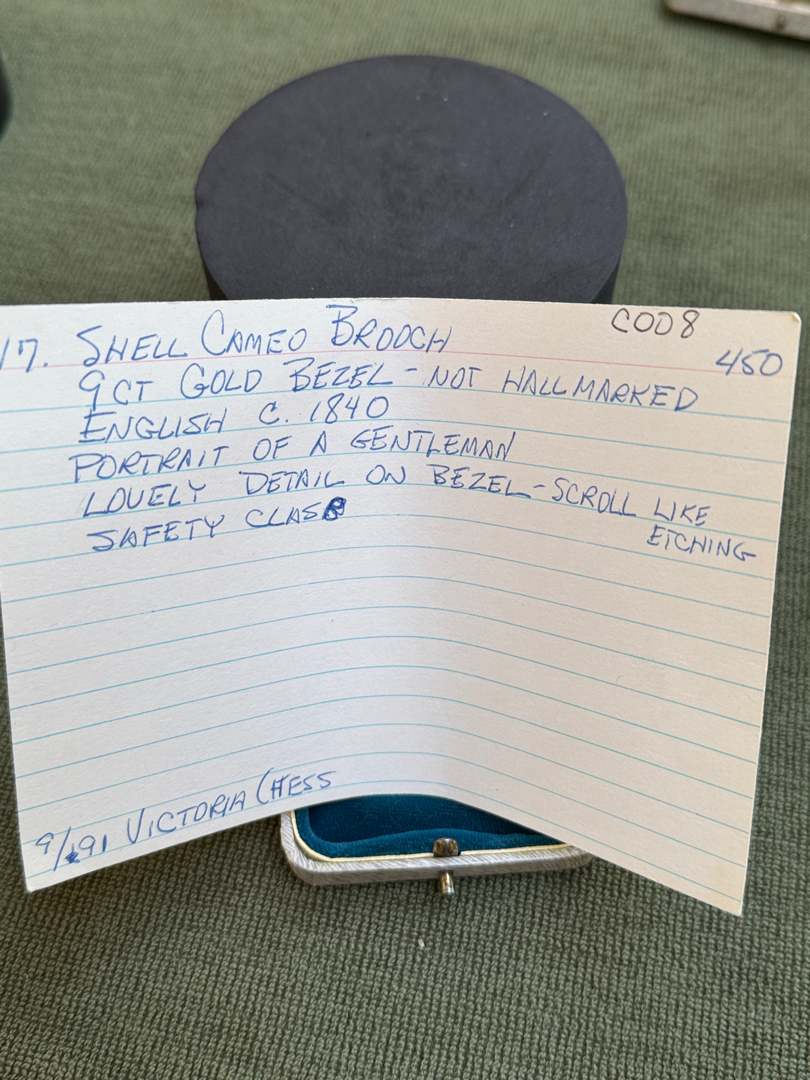 COD8
17. SHELL CAMEO BROOCH 450
9CT GOLD BEZEL - NOT HALLMARKED
ENGLISH C. 1840
PORTRAIT OF A GENTLEMAN
LOVELY DETAIL ON BEZEL - SCROLL LIKE
ETCHING
SAFETY CLASP
9/91 VICTORIA CHESS